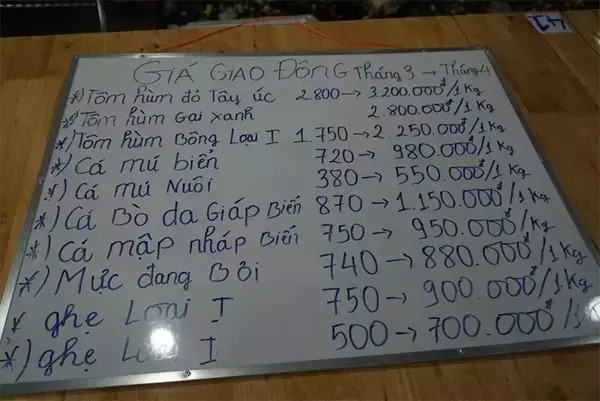 GIÁ GIAO ĐỘNG Tháng 3 → Tháng 4
*) Tôm hùm đỏ Tây úc 2.800 → 3.200.000đ/1Kg
*) Tôm hùm Gai xanh 2.800.000đ/1Kg
*) Tôm hùm Bông Loại I 1.750 → 2.250.000đ/1Kg
*) Cá mú biển 720 → 980.000đ/1Kg
*) Cá mú Nuôi 380 → 550.000đ/1Kg
*) Cá Bò da Giáp Biển 870 → 1.150.000đ/1Kg
*) Cá mập nháp Biển 750 → 950.000đ/1Kg
*) Mực đang Bơi 740 → 880.000đ/1Kg
* ghẹ Loại I 750 → 900.000đ/1Kg
*) ghẹ Loại I 500 → 700.000đ/1